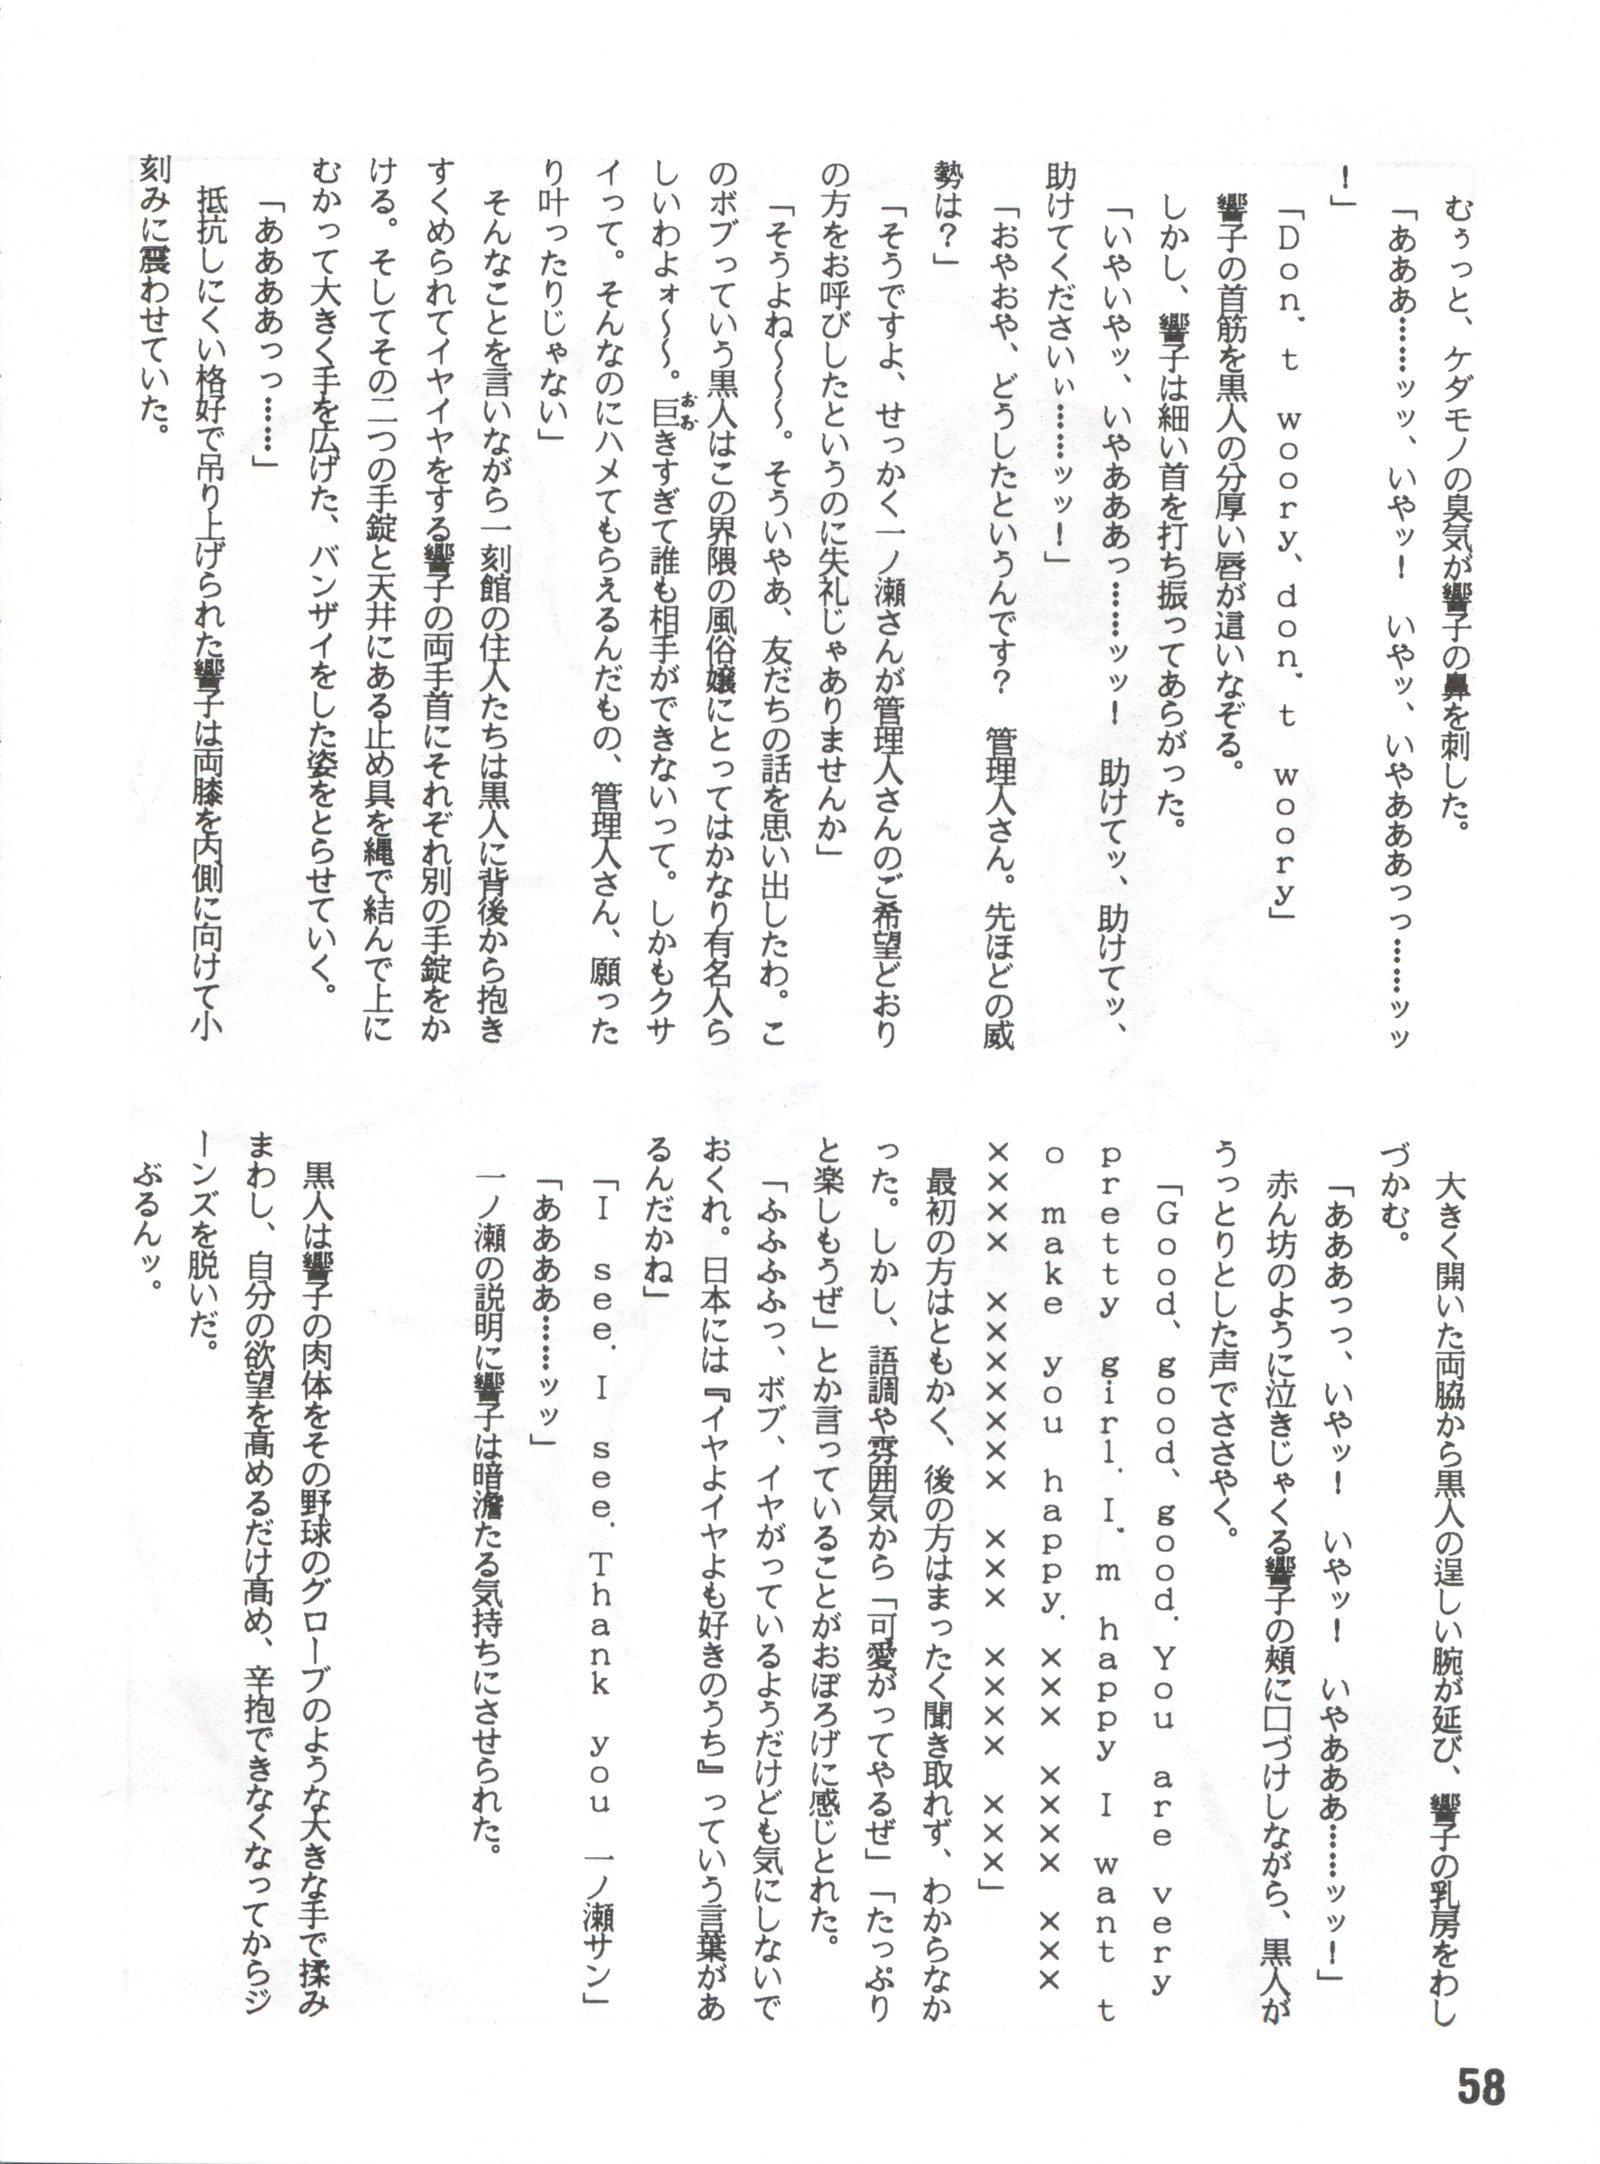 むぅっと、ケダモノの臭気が響子の鼻を刺した。
「あああ……ッッ、いやッ！　いやッ、いやあああっっ……ッッ
！」
「Ｄｏｎ．ｔ　ｗｏｏｒｙ、ｄｏｎ．ｔ　ｗｏｏｒｙ」
響子の首筋を黒人の分厚い唇が這いなぞる。
しかし、響子は細い首を打ち振ってあらがった。
「いやいやッ、いやあああっ……ッッ！　助けてッ、助けてッ、
助けてくださいぃ……ッッ！」
「おやおや、どうしたというんです？　管理人さん。先ほどの威
勢は？」
「そうですよ、せっかく一ノ瀬さんが管理人さんのご希望どおり
の方をお呼びしたというのに失礼じゃありませんか」
「そうよね～～～。そういやあ、友だちの話を思い出したわ。こ
のボブっていう黒人はこの界隈の風俗嬢にとってはかなり有名人ら
しいわよォ～～。巨おおきすぎて誰も相手ができないって。しかもクサ
イって。そんなのにハメてもらえるんだもの、管理人さん、願った
り叶ったりじゃない」
そんなことを言いながら一刻館の住人たちは黒人に背後から抱き
すくめられてイヤイヤをする響子の両手首にそれぞれ別の手錠をか
ける。そしてその二つの手錠と天井にある止め具を縄で結んで上に
むかって大きく手を広げた、バンザイをした姿をとらせていく。
「ああああっっ……」
抵抗しにくい格好で吊り上げられた響子は両膝を内側に向けて小
刻みに震わせていた。
大きく開いた両脇から黒人の逞しい腕が延び、響子の乳房をわし
づかむ。
「あああっっ、いやッ！　いやッ！　いやあああ……ッッ！」
赤ん坊のように泣きじゃくる響子の頬に口づけしながら、黒人が
うっとりとした声でささやく。
「Ｇｏｏｄ、ｇｏｏｄ、ｇｏｏｄ．Ｙｏｕ　ａｒｅ　ｖｅｒｙ
ｐｒｅｔｔｙ　ｇｉｒｌ．Ｉ．ｍ　ｈａｐｐｙ　Ｉ　ｗａｎｔ　ｔ
ｏ　ｍａｋｅ　ｙｏｕ　ｈａｐｐｙ．×××　××××　×××
××××　×××××××　×××　××××　×××」
最初の方はともかく、後の方はまったく聞き取れず、わからなか
った。しかし、語調や雰囲気から「可愛がってやるぜ」「たっぷり
と楽しもうぜ」とか言っていることがおぼろげに感じとれた。
「ふふふふっ、ボブ、イヤがっているようだけども気にしないで
おくれ。日本には『イヤよイヤよも好きのうち』っていう言葉があ
るんだかね」
「Ｉ　ｓｅｅ．Ｉ　ｓｅｅ．Ｔｈａｎｋ　ｙｏｕ　一ノ瀬サン」
「ああああ……ッッ」
一ノ瀬の説明に響子は暗澹たる気持ちにさせられた。
黒人は響子の肉体をその野球のグローブのような大きな手で揉み
まわし、自分の欲望を高めるだけ高め、辛抱できなくなってからジ
ーンズを脱いだ。
ぶるんッ。
58